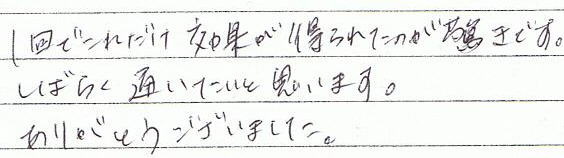 1回でこれだけ効果が得られたのが驚きです。
しばらく通いたいと思います。
ありがとうございました。